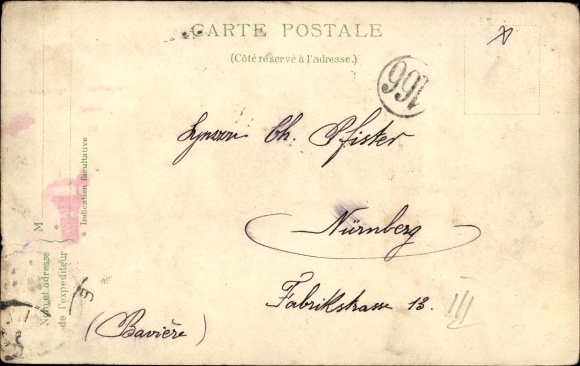 CARTE POSTALE
(Côté réservé à l'adresse.)
166
Ch. Pfister
Nürnberg
Fabrikstrasse 13.
III
(Bavière)
M
Nom et adresse
de l'expéditeur
* Indication facultative